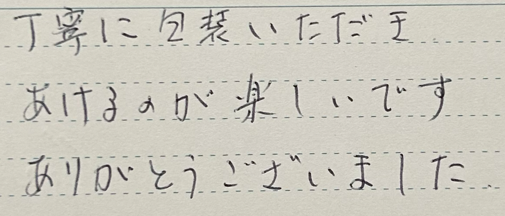 丁寧に包装いただき
あけるのが楽しいです
ありがとうございました